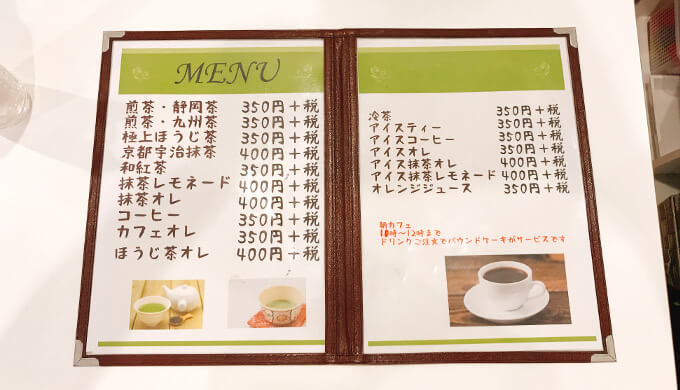 MENU
煎茶・静岡茶 350円+税
煎茶・九州茶 350円+税
極上ほうじ茶 350円+税
京都宇治抹茶 400円+税
和紅茶 350円+税
抹茶レモネード 400円+税
抹茶オレ 400円+税
コーヒー 350円+税
カフェオレ 350円+税
ほうじ茶オレ 400円+税
冷茶 350円+税
アイスティー 350円+税
アイスコーヒー 350円+税
アイスオレ 350円+税
アイス抹茶オレ 400円+税
アイス抹茶レモネード 400円+税
オレンジジュース 350円+税
朝カフェ
10時〜12時まで
ドリンクご注文でパウンドケーキがサービスです